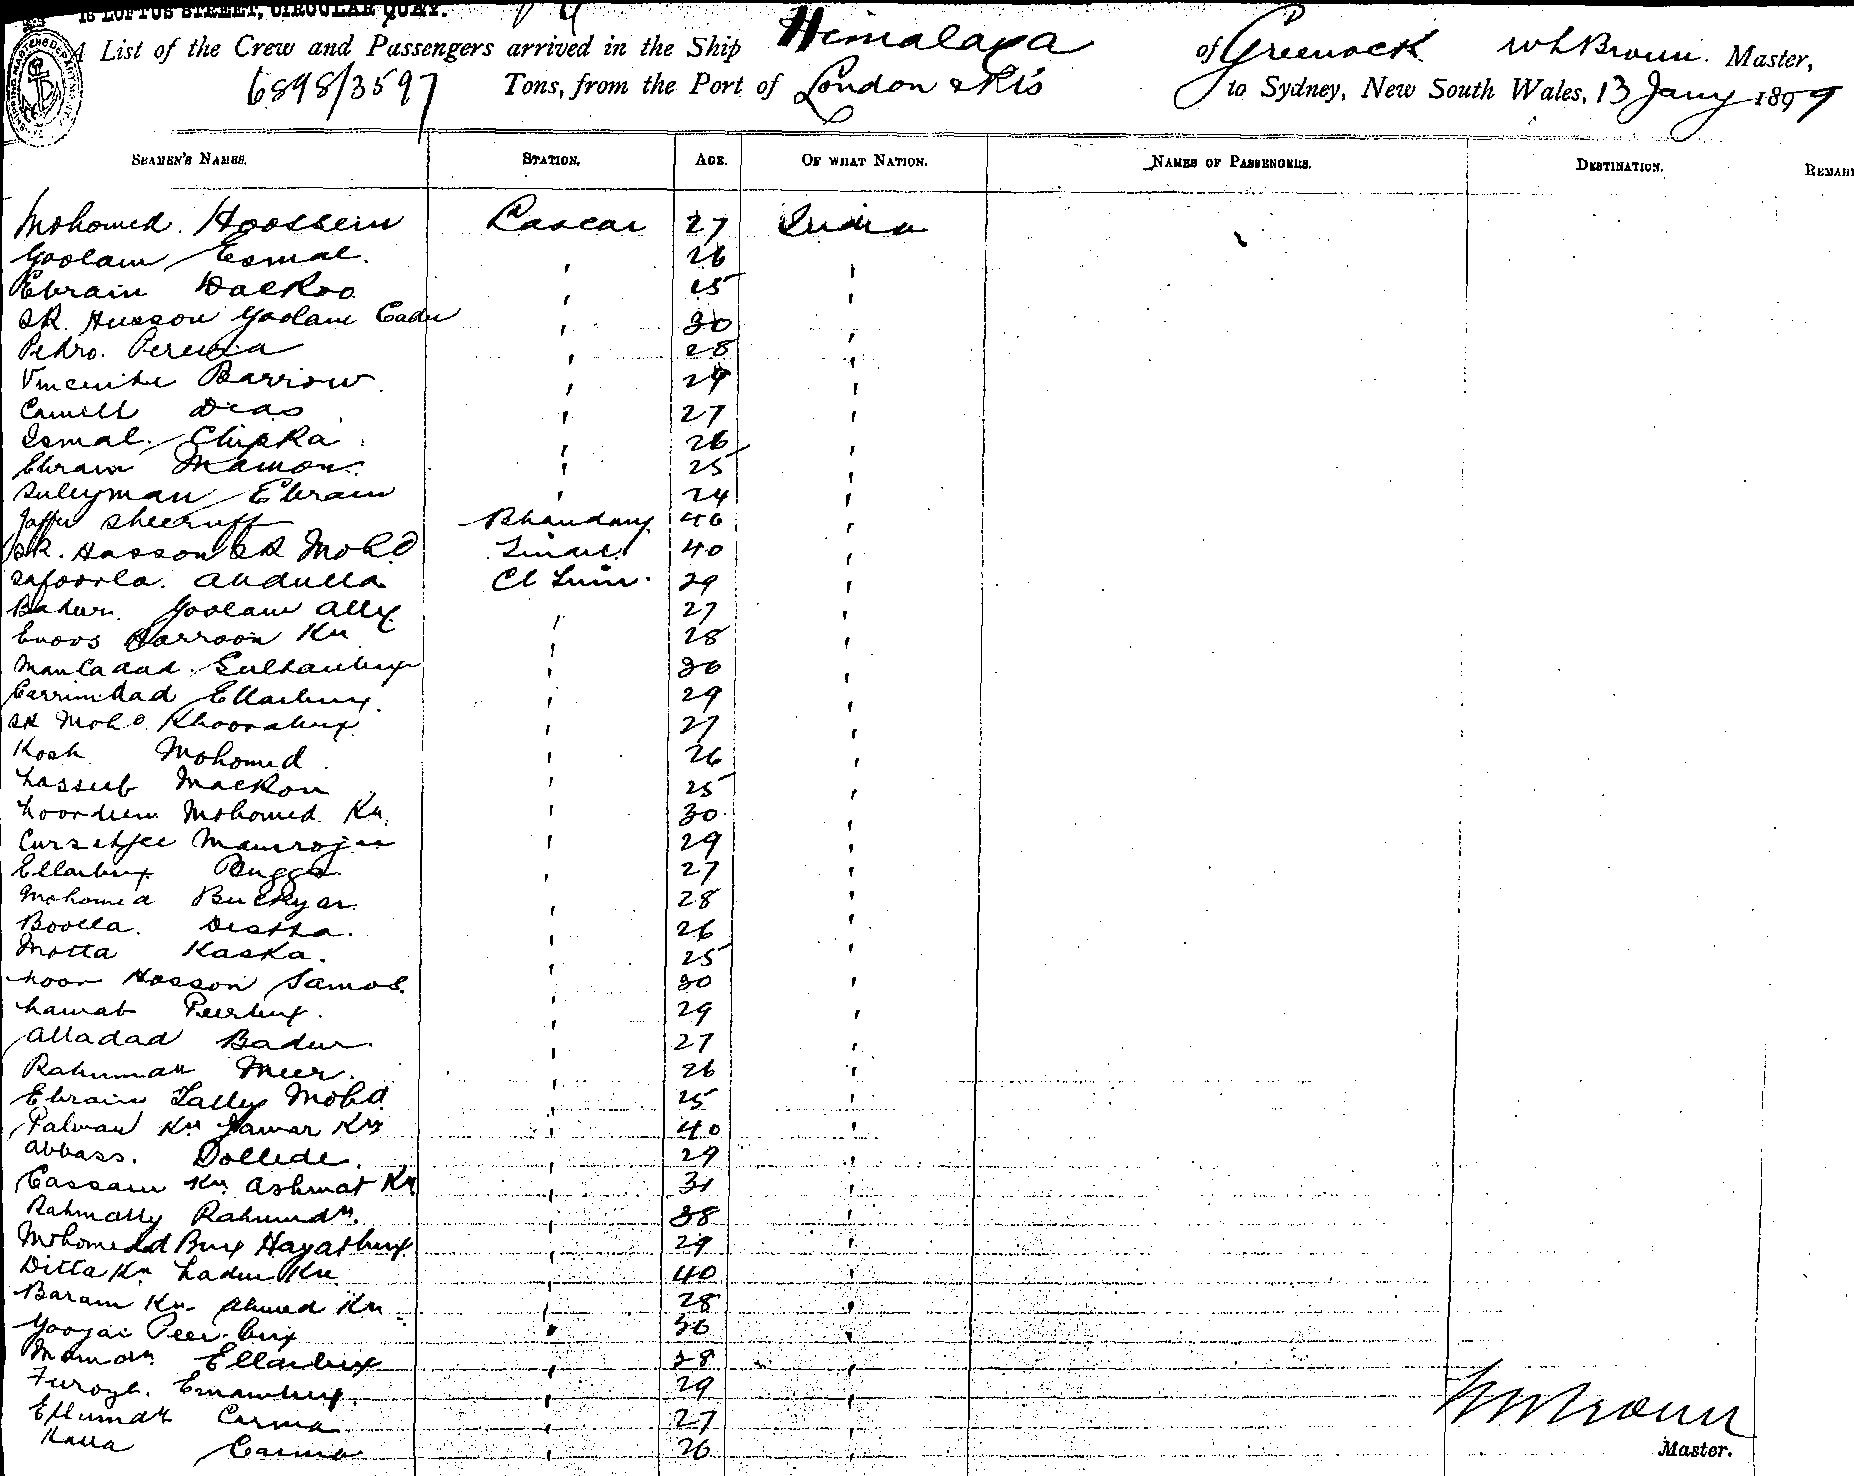 15 LOFTUS STREET, CIRCULAR QUAY.
A List of the Crew and Passengers arrived in the Ship Himalaya of Greenock W L Broun. Master,
6898/3597 Tons, from the Port of London & Pts to Sydney, New South Wales, 13 Jany 1899
SEAMEN'S NAMES. STATION. AGE. OF WHAT NATION. NAMES OF PASSENGERS. DESTINATION. REMARK
Mohomed Hoossein Lascar 27 India
Goolam Esmal. " 26 "
Ebraim Dackoo " 25 "
SK. Husson Goolam Cadu " 30 "
Pedro. Pereira " 28 "
Barrow " 29 "
Camill Dias " 27 "
Esmal. Chipka " 26 "
Ebraim Mamon. " 25 "
Suleyman Ebraim " 24 "
Jaffer Sheeruff Bhandary 40 "
SK. Hasson SK Mohd 40 "
Abdulla 29 "
Badur. Goolam Ally " 27 "
Enoos Harroon Kn " 28 "
Mauladad. Sultanbux " 30 "
Carrimdad Ellarbux. " 29 "
SK Mohd Khoorabux " 27 "
Kosh Mohomed. " 26 "
Mackon " 25 "
Noordeen Mohomed Kn. " 30 "
Cursetjee " 29 "
Ellarbux Bugga " 27 "
Mohomed Buckyar. " 28 "
Boolla. Distha. " 26 "
Motta Kaska. " 25 "
Noor Hasson " 30 "
Nawab Peerbux. " 29 "
Alladad Badur. " 27 "
Rahmuan Meer. " 26 "
Ebraim Lally Mohd " 25 "
Palwan Kn Jawar Kn " 40 "
Abbass. Dollede. " 29 "
Cassam Kn Ashmat Kn " 31 "
Rahmally " 38 "
Mohomed Bux Hayatbux. " 29 "
Ditta Kn Nadur Kn " 40 "
Baram Kn Ahmed Kn " 28 "
Peer bux " 30 "
Ellarbux " 28 "
Emambux. " 29 "
Curma " 27 "
Kalla Carma 26
W L Broun
Master.